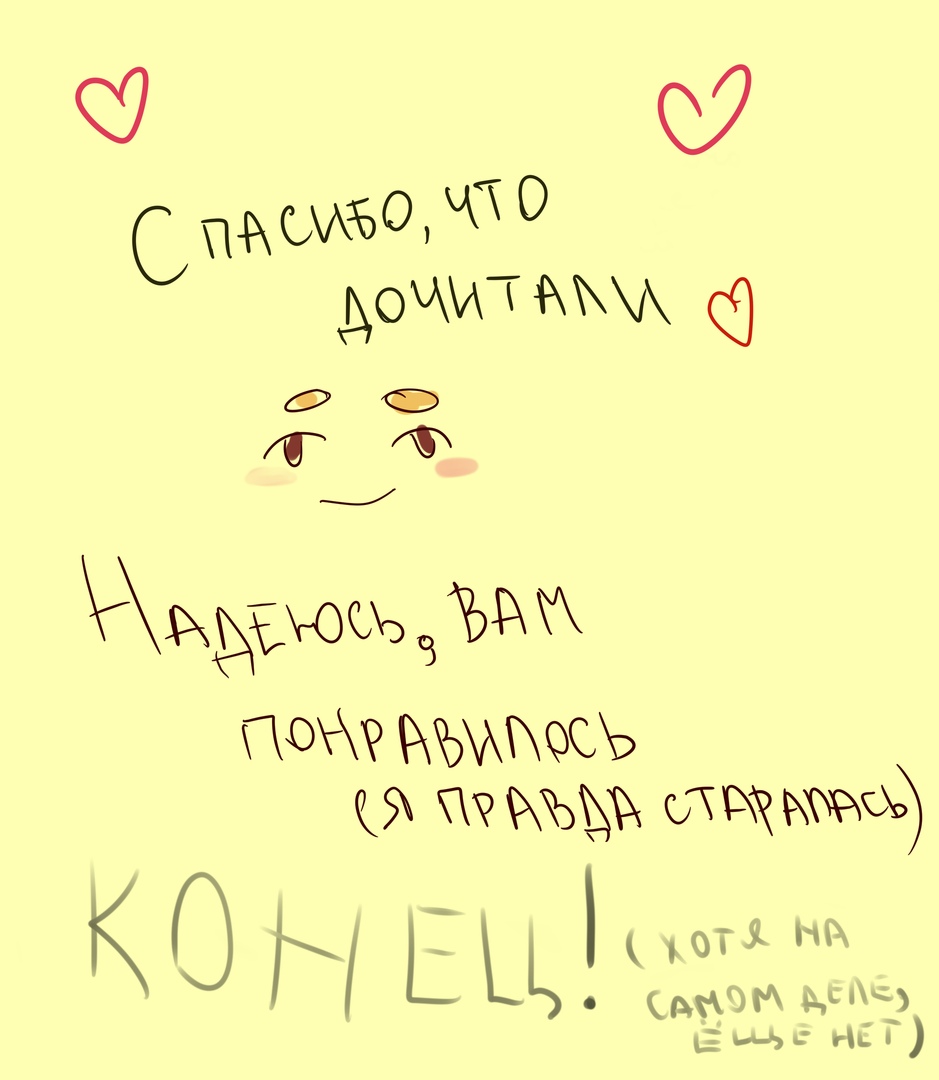 Спасибо, что
дочитали
Надеюсь, вам
понравилось
(я правда старалась)
КОНЕЦ! (хотя на
самом деле,
ёще нет)